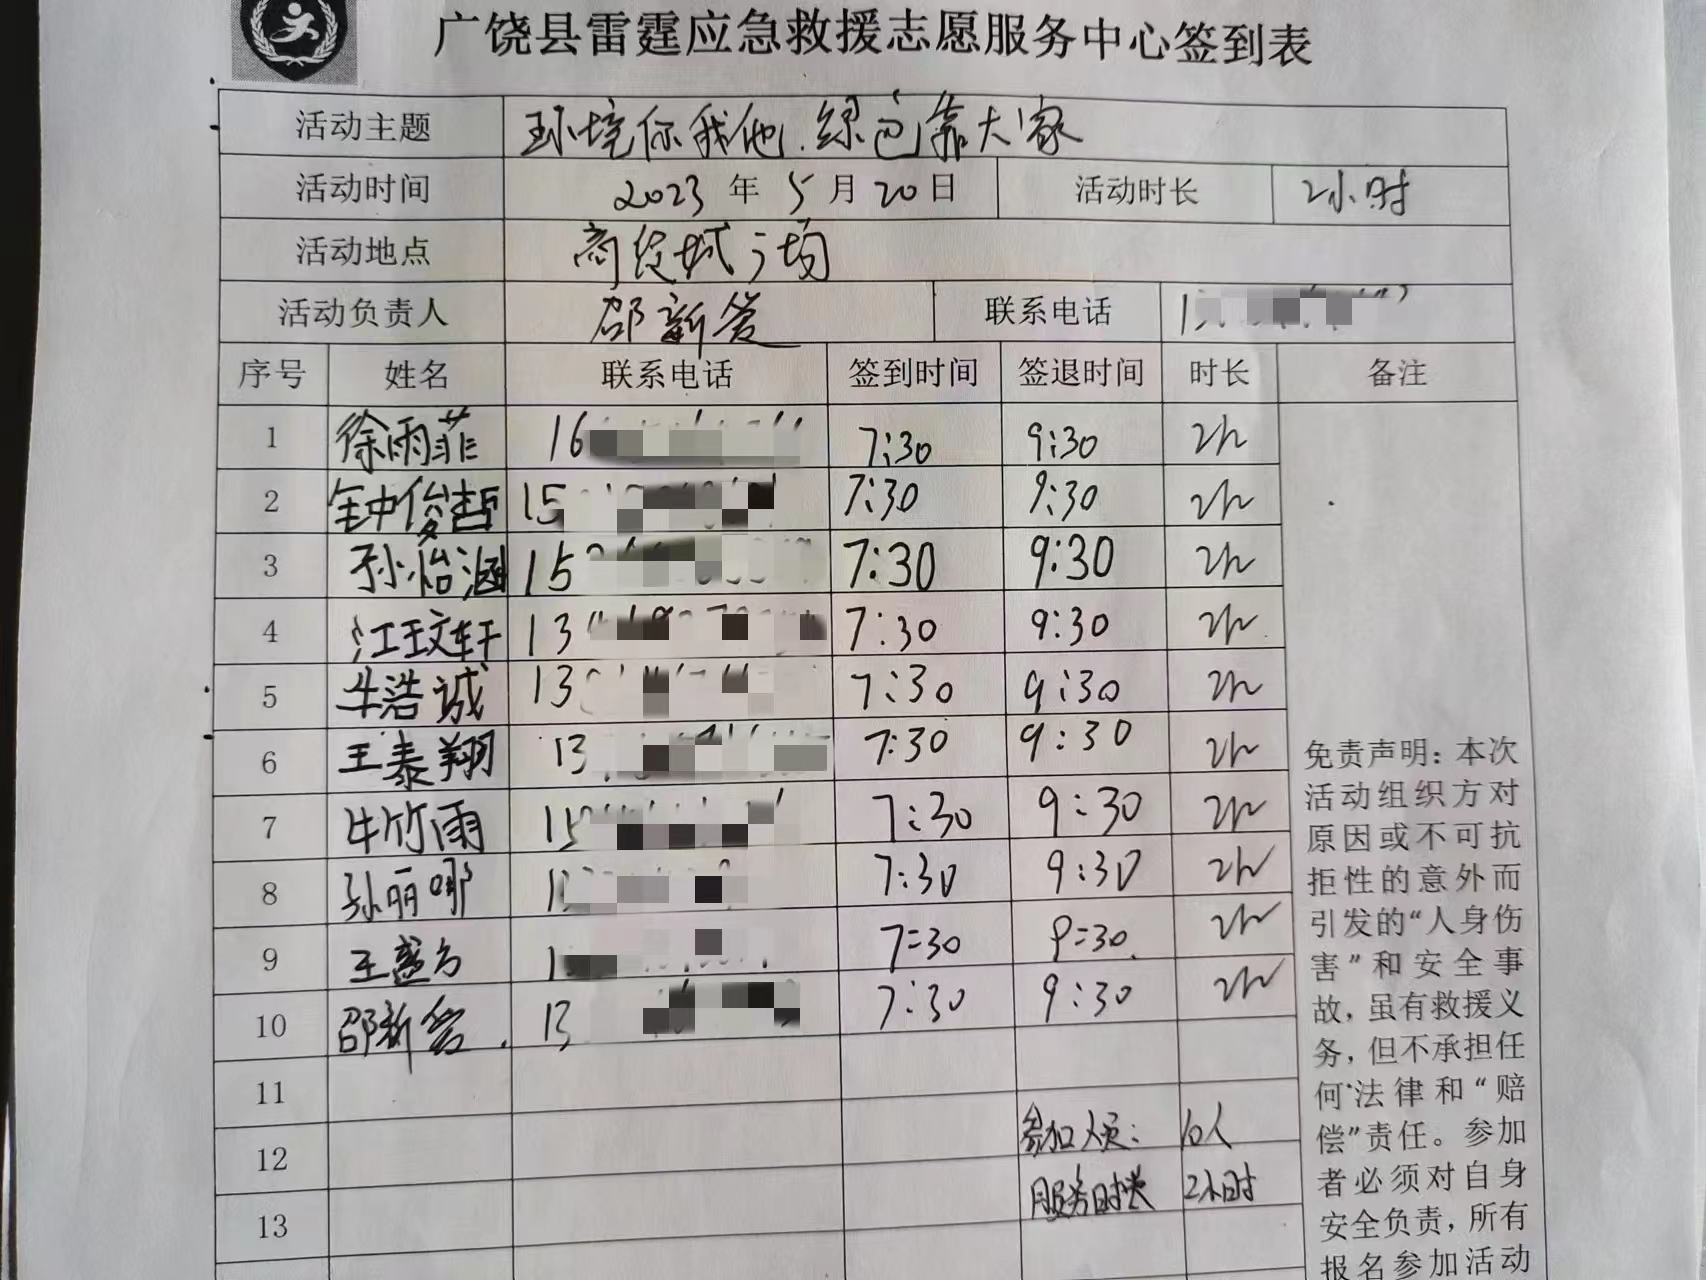 广饶县雷霆应急救援志愿服务中心签到表
活动主题 环境你我他.绿色靠大家
活动时间 2023年5月20日 活动时长 2小时
活动地点 商贸城广场
活动负责人 邵新管 联系电话 1
序号 姓名 联系电话 签到时间 签退时间 时长 备注
1 徐雨菲 16 7:30 9:30 2h
2 钟俊哲 15 7:30 9:30 2h
3 孙怡涵 15 7:30 9:30 2h
4 江玟轩 13 7:30 9:30 2h
5 牛浩诚 13 7:30 9:30 2h
6 王泰翔 13 7:30 9:30 2h
7 牛竹雨 15 7:30 9:30 2h
8 孙丽娜 1 7:30 9:30 2h
9 王盛方 1 7:30 9:30 2h
10 邵新管. 13 7:30 9:30 2h
11
12 参加人员: 10人
13 服务时长 2小时
免责声明:本次
活动组织方对
原因或不可抗
拒性的意外而
引发的“人身伤
害”和安全事
故,虽有救援义
务,但不承担任
何法律和“赔
偿”责任。参加
者必须对自身
安全负责,所有
报名参加活动